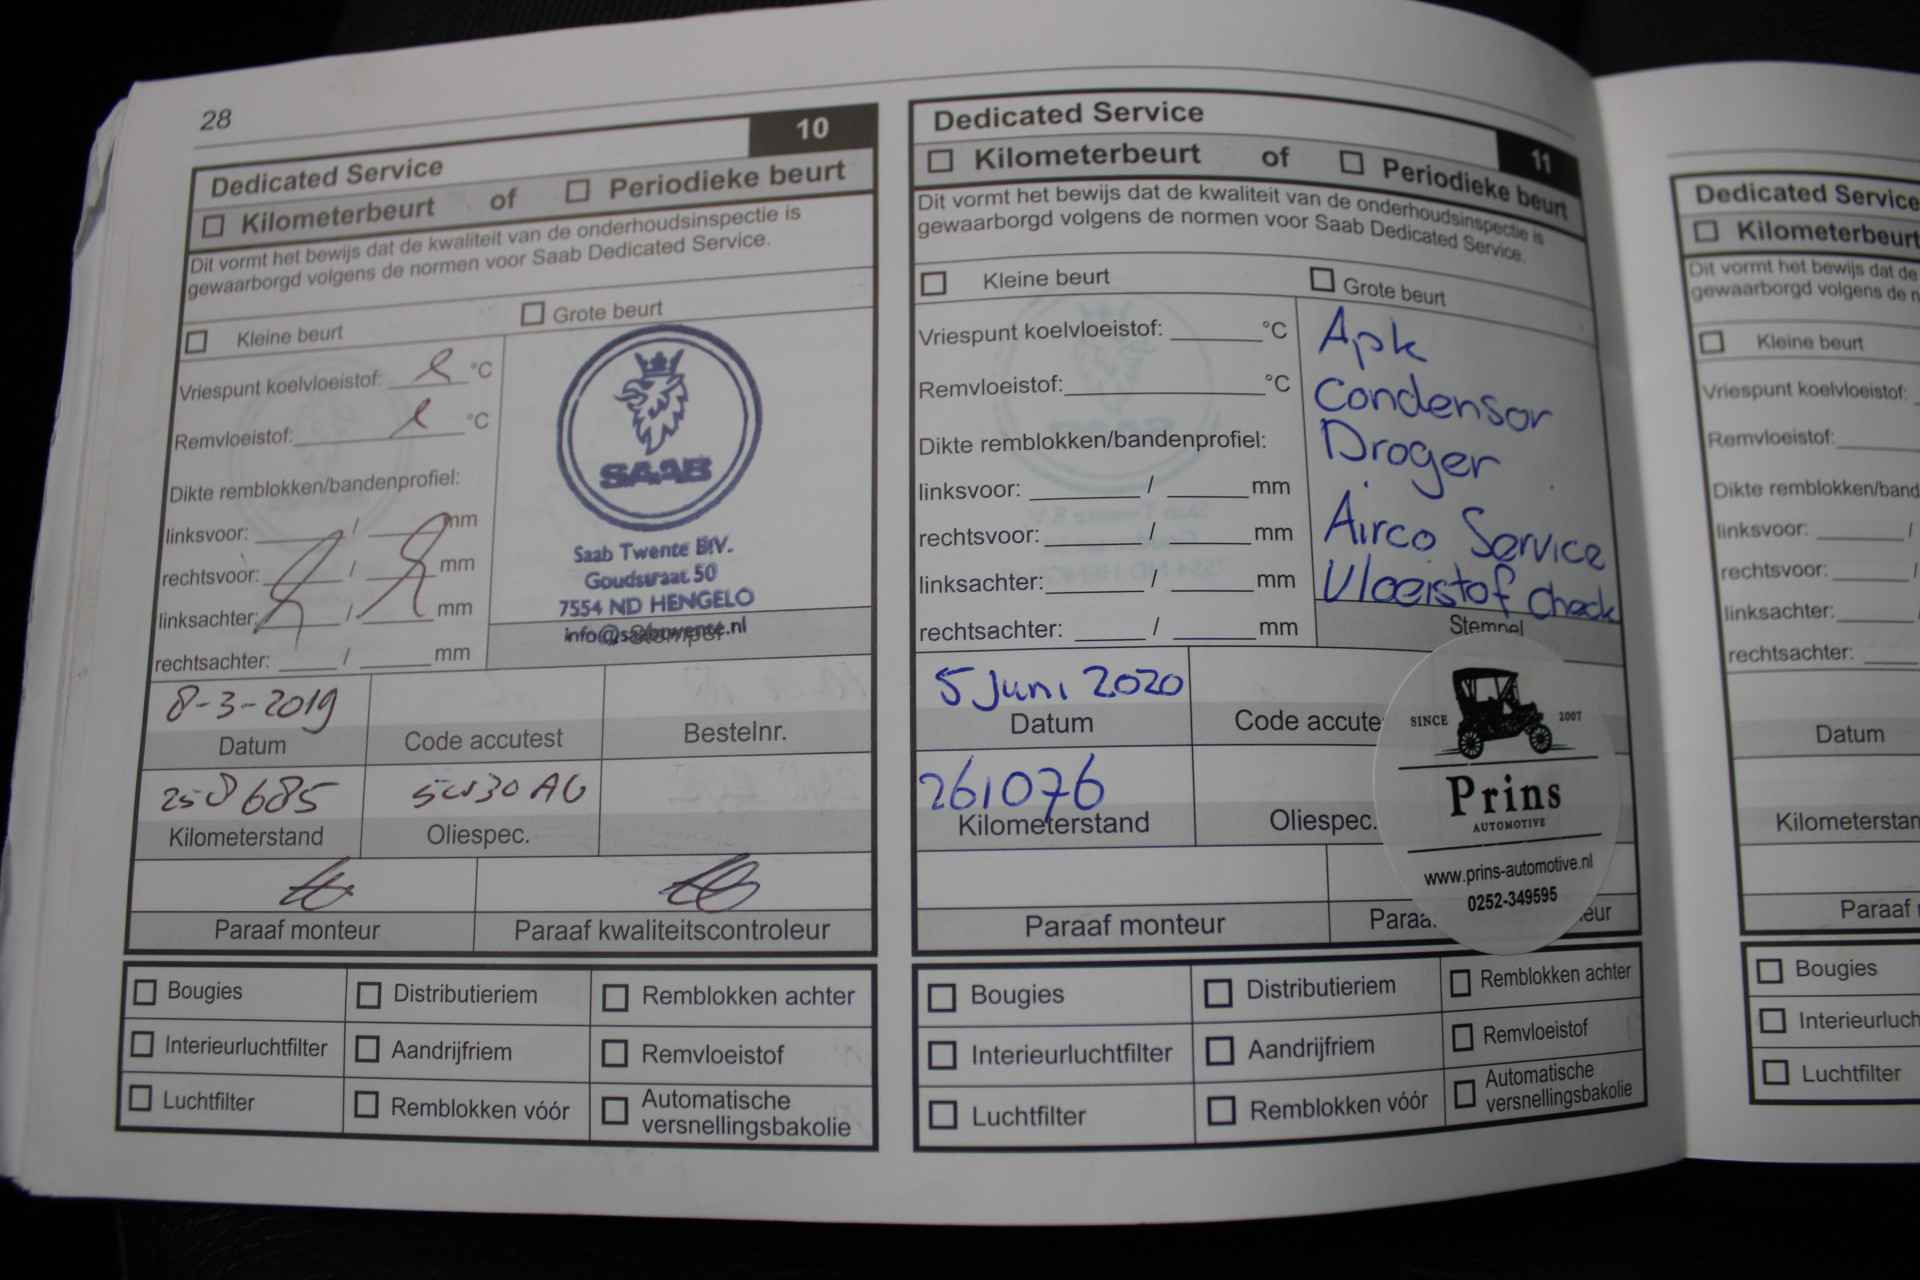 28
10
Dedicated Service
Kilometerbeurt of Periodieke beurt
Dit vormt het bewijs dat de kwaliteit van de onderhoudsinspectie is
gewaarborgd volgens de normen voor Saab Dedicated Service.
Kleine beurt Grote beurt
Vriespunt koelvloeistof: °C
Remvloeistof: °C
Dikte remblokken/bandenprofiel:
linksvoor: / mm
rechtsvoor: / mm
linksachter: / mm
rechtsachter: / mm
SAAB
Saab Twente B.V.
Goudstraat 50
7554 ND HENGELO
info@saabtwente.nl
Stempel
8-3-2019
Datum Code accutest Bestelnr.
258685 5W30 AG
Kilometerstand Oliespec.
Paraaf monteur Paraaf kwaliteitscontroleur
Bougies Distributieriem Remblokken achter
Interieurluchtfilter Aandrijfriem Remvloeistof
Luchtfilter Remblokken vóór Automatische
versnellingsbakolie
Dedicated Service
11
Kilometerbeurt of Periodieke beurt
Dit vormt het bewijs dat de kwaliteit van de onderhoudsinspectie is
gewaarborgd volgens de normen voor Saab Dedicated Service.
Kleine beurt Grote beurt
Vriespunt koelvloeistof: °C
Remvloeistof: °C
Dikte remblokken/bandenprofiel:
linksvoor: / mm
rechtsvoor: / mm
linksachter: / mm
rechtsachter: / mm
Apk
Condensor
Droger
Airco Service
Vloeistof check
Stempel
5 Juni 2020
Datum Code accute
261076
Kilometerstand Oliespec.
SINCE 2007
Prins
AUTOMOTIVE
www.prins-automotive.nl
0252-349595
Paraaf monteur Paraa eur
Bougies Distributieriem Remblokken achter
Interieurluchtfilter Aandrijfriem Remvloeistof
Luchtfilter Remblokken vóór Automatische
versnellingsbakolie
Dedicated Service
Kilometerbeurt
Dit vormt het bewijs dat de
gewaarborgd volgens de n
Kleine beurt
Vriespunt koelvloeistof:
Remvloeistof:
Dikte remblokken/band
linksvoor: /
rechtsvoor: /
linksachter:
rechtsachter:
Datum
Kilometerstan
Paraaf
Bougies
Interieurluch
Luchtfilter